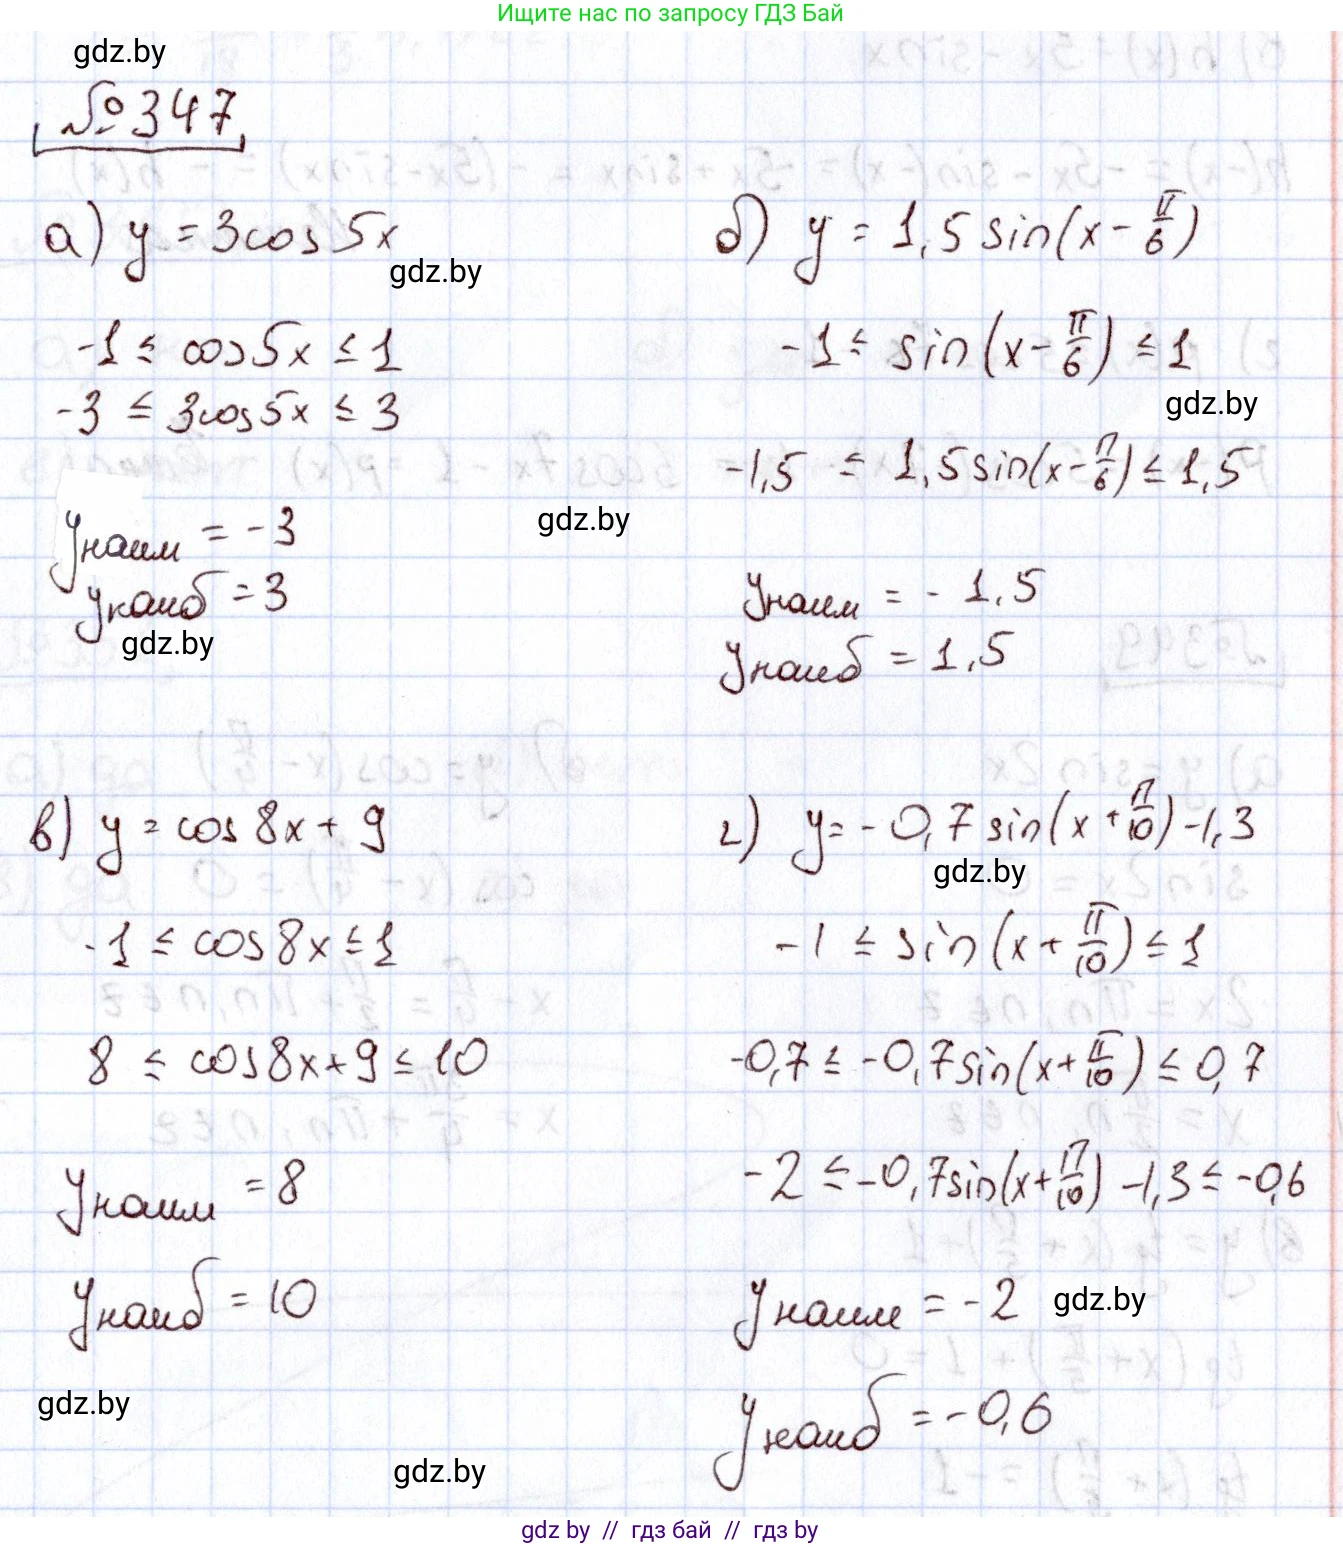 Ищите нас по запросу ГДЗ Бай
gdz.by
№347
а) y = 3cos 5x
gdz.by
-1 ≤ cos5x ≤ 1
-3 ≤ 3cos5x ≤ 3
yнаим = -3
yнаиб = 3
gdz.by
gdz.by
б) y = 1,5 sin(x - π/6)
-1 ≤ sin(x - π/6) ≤ 1
gdz.by
-1,5 ≤ 1,5sin(x - π/6) ≤ 1,5
yнаим = -1,5
yнаиб = 1,5
в) y = cos 8x + 9
-1 ≤ cos8x ≤ 1
8 ≤ cos8x + 9 ≤ 10
yнаим = 8
yнаиб = 10
gdz.by
gdz.by
г) y = -0,7 sin(x + π/10) - 1,3
gdz.by
-1 ≤ sin(x + π/10) ≤ 1
-0,7 ≤ -0,7sin(x + π/10) ≤ 0,7
-2 ≤ -0,7sin(x + π/10) - 1,3 ≤ -0,6
yнаим = -2
gdz.by
yнаиб = -0,6
gdz by // гдз бай // гдз by